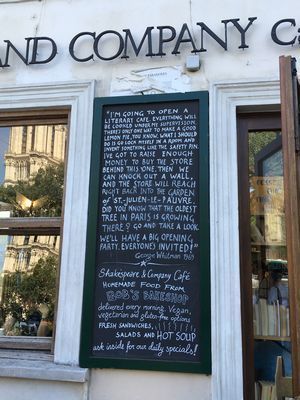 AND COMPANY Ca
"I'M GOING TO OPEN A
LITERARY CAFE. EVERYTHING WILL
BE COOKED UNDER MY SUPERVISION.
THERE'S ONLY ONE WAY TO MAKE A GOOD
LEMON PIE, YOU KNOW. WHAT I SHOULD
DO IS GO LOCK MYSELF IN A ROOM AND
INVENT SOMETHING LIKE THE SAFETY PIN.
I'VE GOT TO RAISE ENOUGH
MONEY TO BUY THE STORE
BEHIND THIS ONE, THEN WE
CAN KNOCK OUT A WALL,
AND THE STORE WILL REACH
RIGHT BACK INTO THE GARDEN
of ST.-JULIEN-LE-PAUVRE.
DID YOU KNOW THAT THE OLDEST
TREE IN PARIS IS GROWING
THERE? GO AND TAKE A LOOK.
WE'LL HAVE A BIG OPENING
PARTY. EVERYONE'S INVITED!"
George Whitman 1969
Shakespeare & Company Café
HOMEMADE FOOD FROM
BOB'S BAKESHOP
delivered every morning. Vegan,
vegetarian and gluten-free options
FRESH SANDWICHES,
SALADS AND HOT SOUP
ask inside for our daily specials!